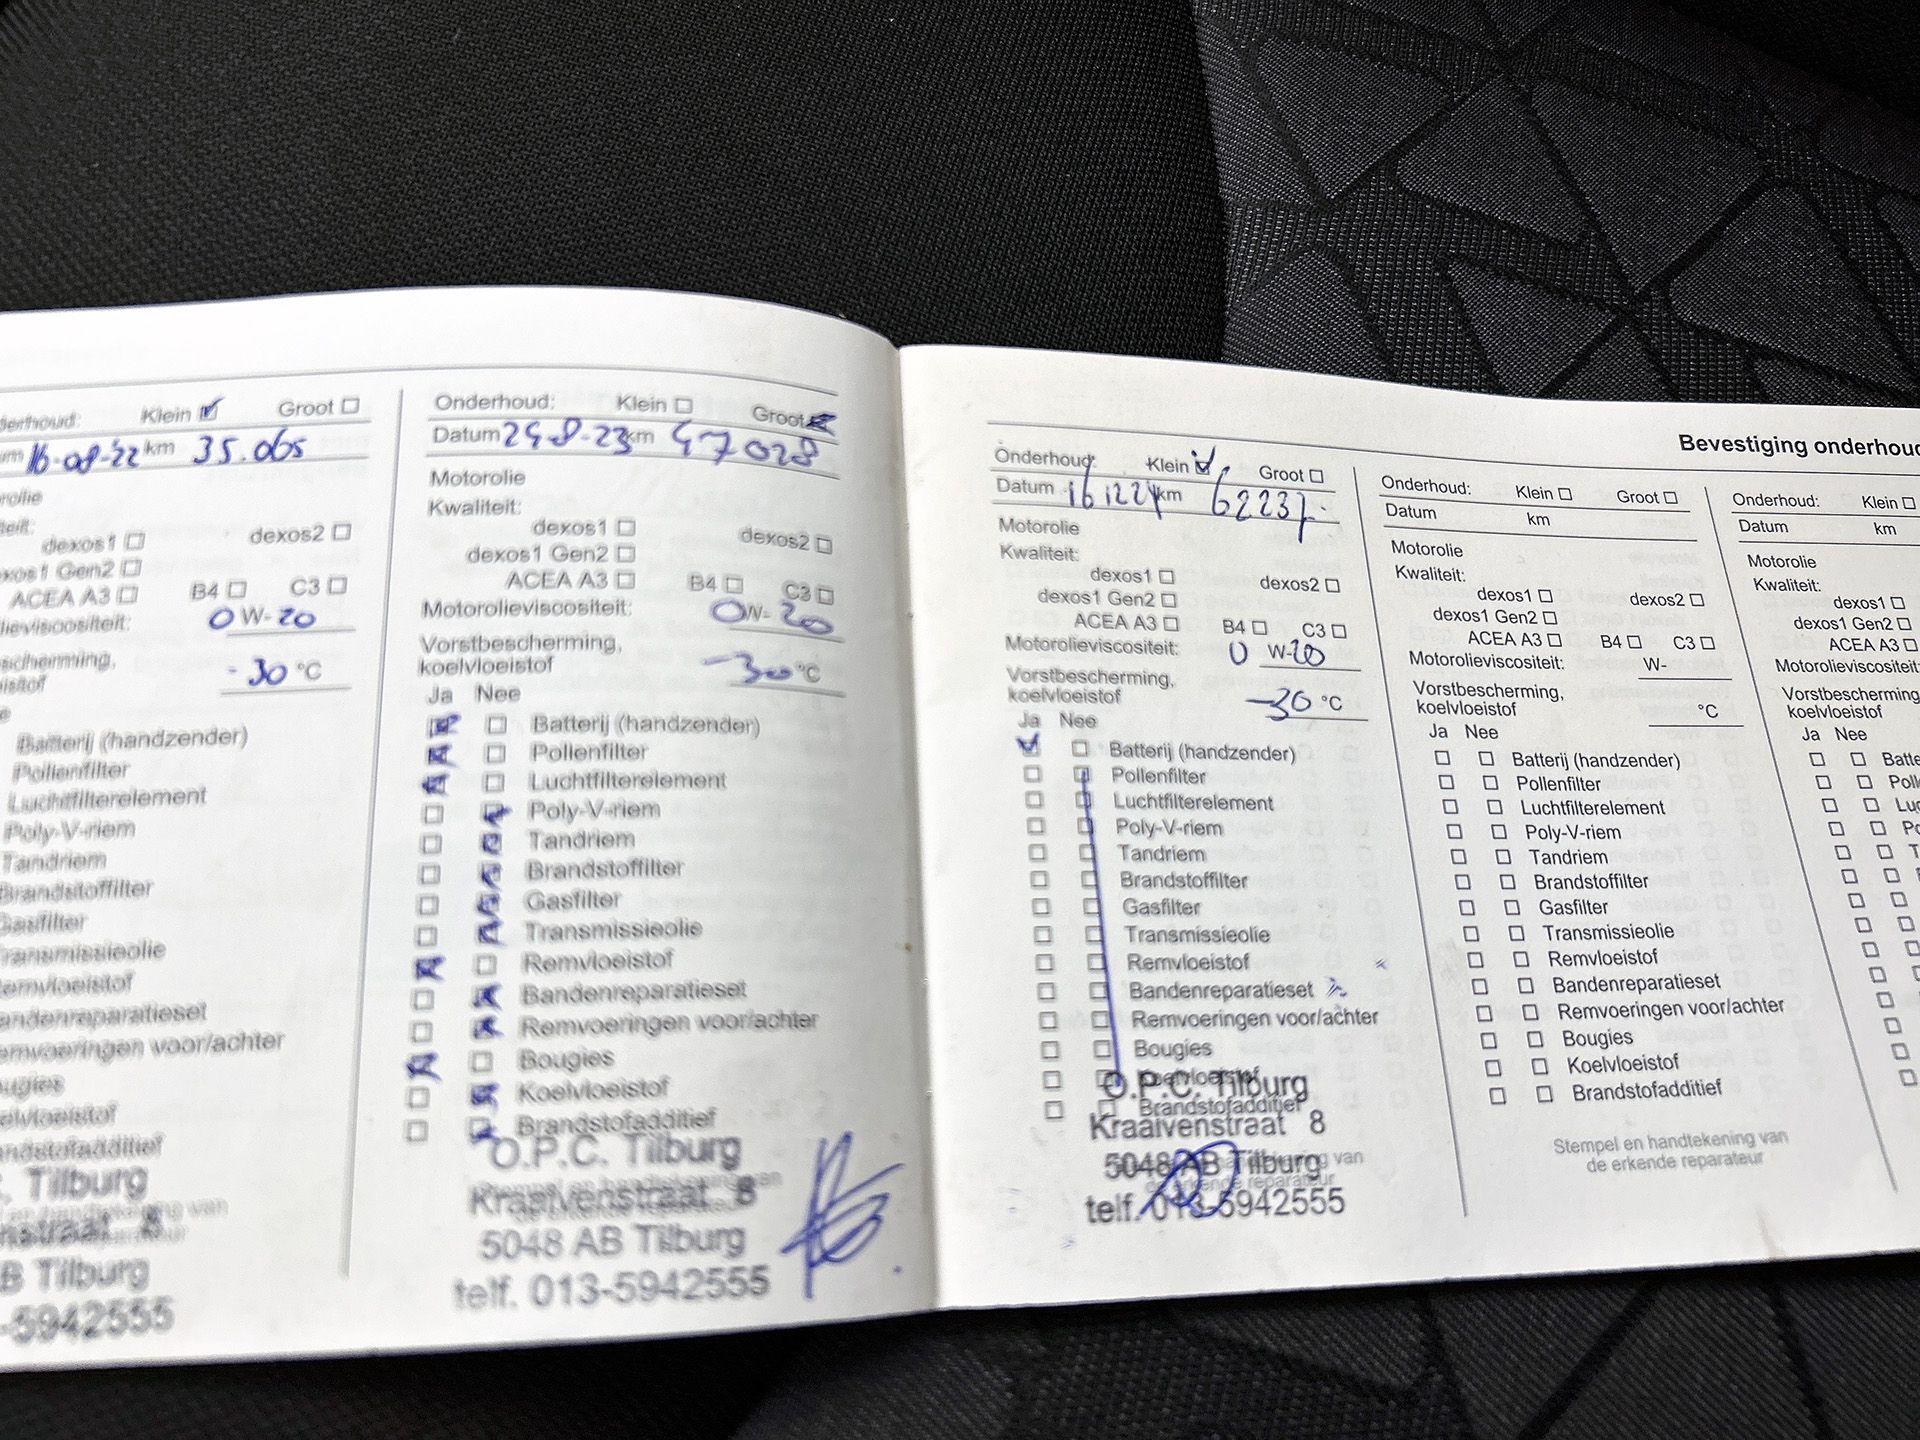 derhoud: Klein Groot
um 16-08-'22 km 35.065
rolie
teit:
dexos1 dexos2
xos1 Gen2
ACEA A3 B4 C3
lieviscositeit: 0 W-20
scherming,
istof -30 °C
Batterij (handzender)
Pollenfilter
Luchtfilterelement
Poly-V-riem
Tandriem
Brandstoffilter
Gasfilter
Transmissieolie
Remvloeistof
andenreparatieset
emvoeringen voor/achter
ugies
elvloeistof
andstofadditief
. Tilburg
nstraat 8
B Tilburg
-5942555
Onderhoud: Klein Groot
Datum 24-8-23 km 47028
Motorolie
Kwaliteit:
dexos1 dexos2
dexos1 Gen2
ACEA A3 B4 C3
Motorolieviscositeit: 0 W-20
Vorstbescherming,
koelvloeistof -30 °C
Ja Nee
Batterij (handzender)
Pollenfilter
Luchtfilterelement
Poly-V-riem
Tandriem
Brandstoffilter
Gasfilter
Transmissieolie
Remvloeistof
Bandenreparatieset
Remvoeringen voor/achter
Bougies
Koelvloeistof
Brandstofadditief
O.P.C. Tilburg
Kraaivenstraat 8
5048 AB Tilburg
telf. 013-5942555
Bevestiging onderhoud
Onderhoud: Klein Groot
Datum km 62237
Motorolie
Kwaliteit:
dexos1 dexos2
dexos1 Gen2
ACEA A3 B4 C3
Motorolieviscositeit: 0 W-20
Vorstbescherming,
koelvloeistof -30 °C
Ja Nee
Batterij (handzender)
Pollenfilter
Luchtfilterelement
Poly-V-riem
Tandriem
Brandstoffilter
Gasfilter
Transmissieolie
Remvloeistof
Bandenreparatieset
Remvoeringen voor/achter
Bougies
Koelvloeistof
Brandstofadditief
O.P.C. Tilburg
Kraaivenstraat 8
5048 AB Tilburg
telf. 013-5942555
Onderhoud: Klein Groot
Datum km
Motorolie
Kwaliteit:
dexos1 dexos2
dexos1 Gen2
ACEA A3 B4 C3
Motorolieviscositeit: W-
Vorstbescherming,
koelvloeistof °C
Ja Nee
Batterij (handzender)
Pollenfilter
Luchtfilterelement
Poly-V-riem
Tandriem
Brandstoffilter
Gasfilter
Transmissieolie
Remvloeistof
Bandenreparatieset
Remvoeringen voor/achter
Bougies
Koelvloeistof
Brandstofadditief
Stempel en handtekening van
de erkende reparateur
Onderhoud: Klein
Datum km
Motorolie
Kwaliteit:
dexos1
dexos1 Gen2
ACEA A3
Motorolieviscositeit:
Vorstbescherming,
koelvloeistof
Ja Nee
Batte
Polle
Luc
Po
T